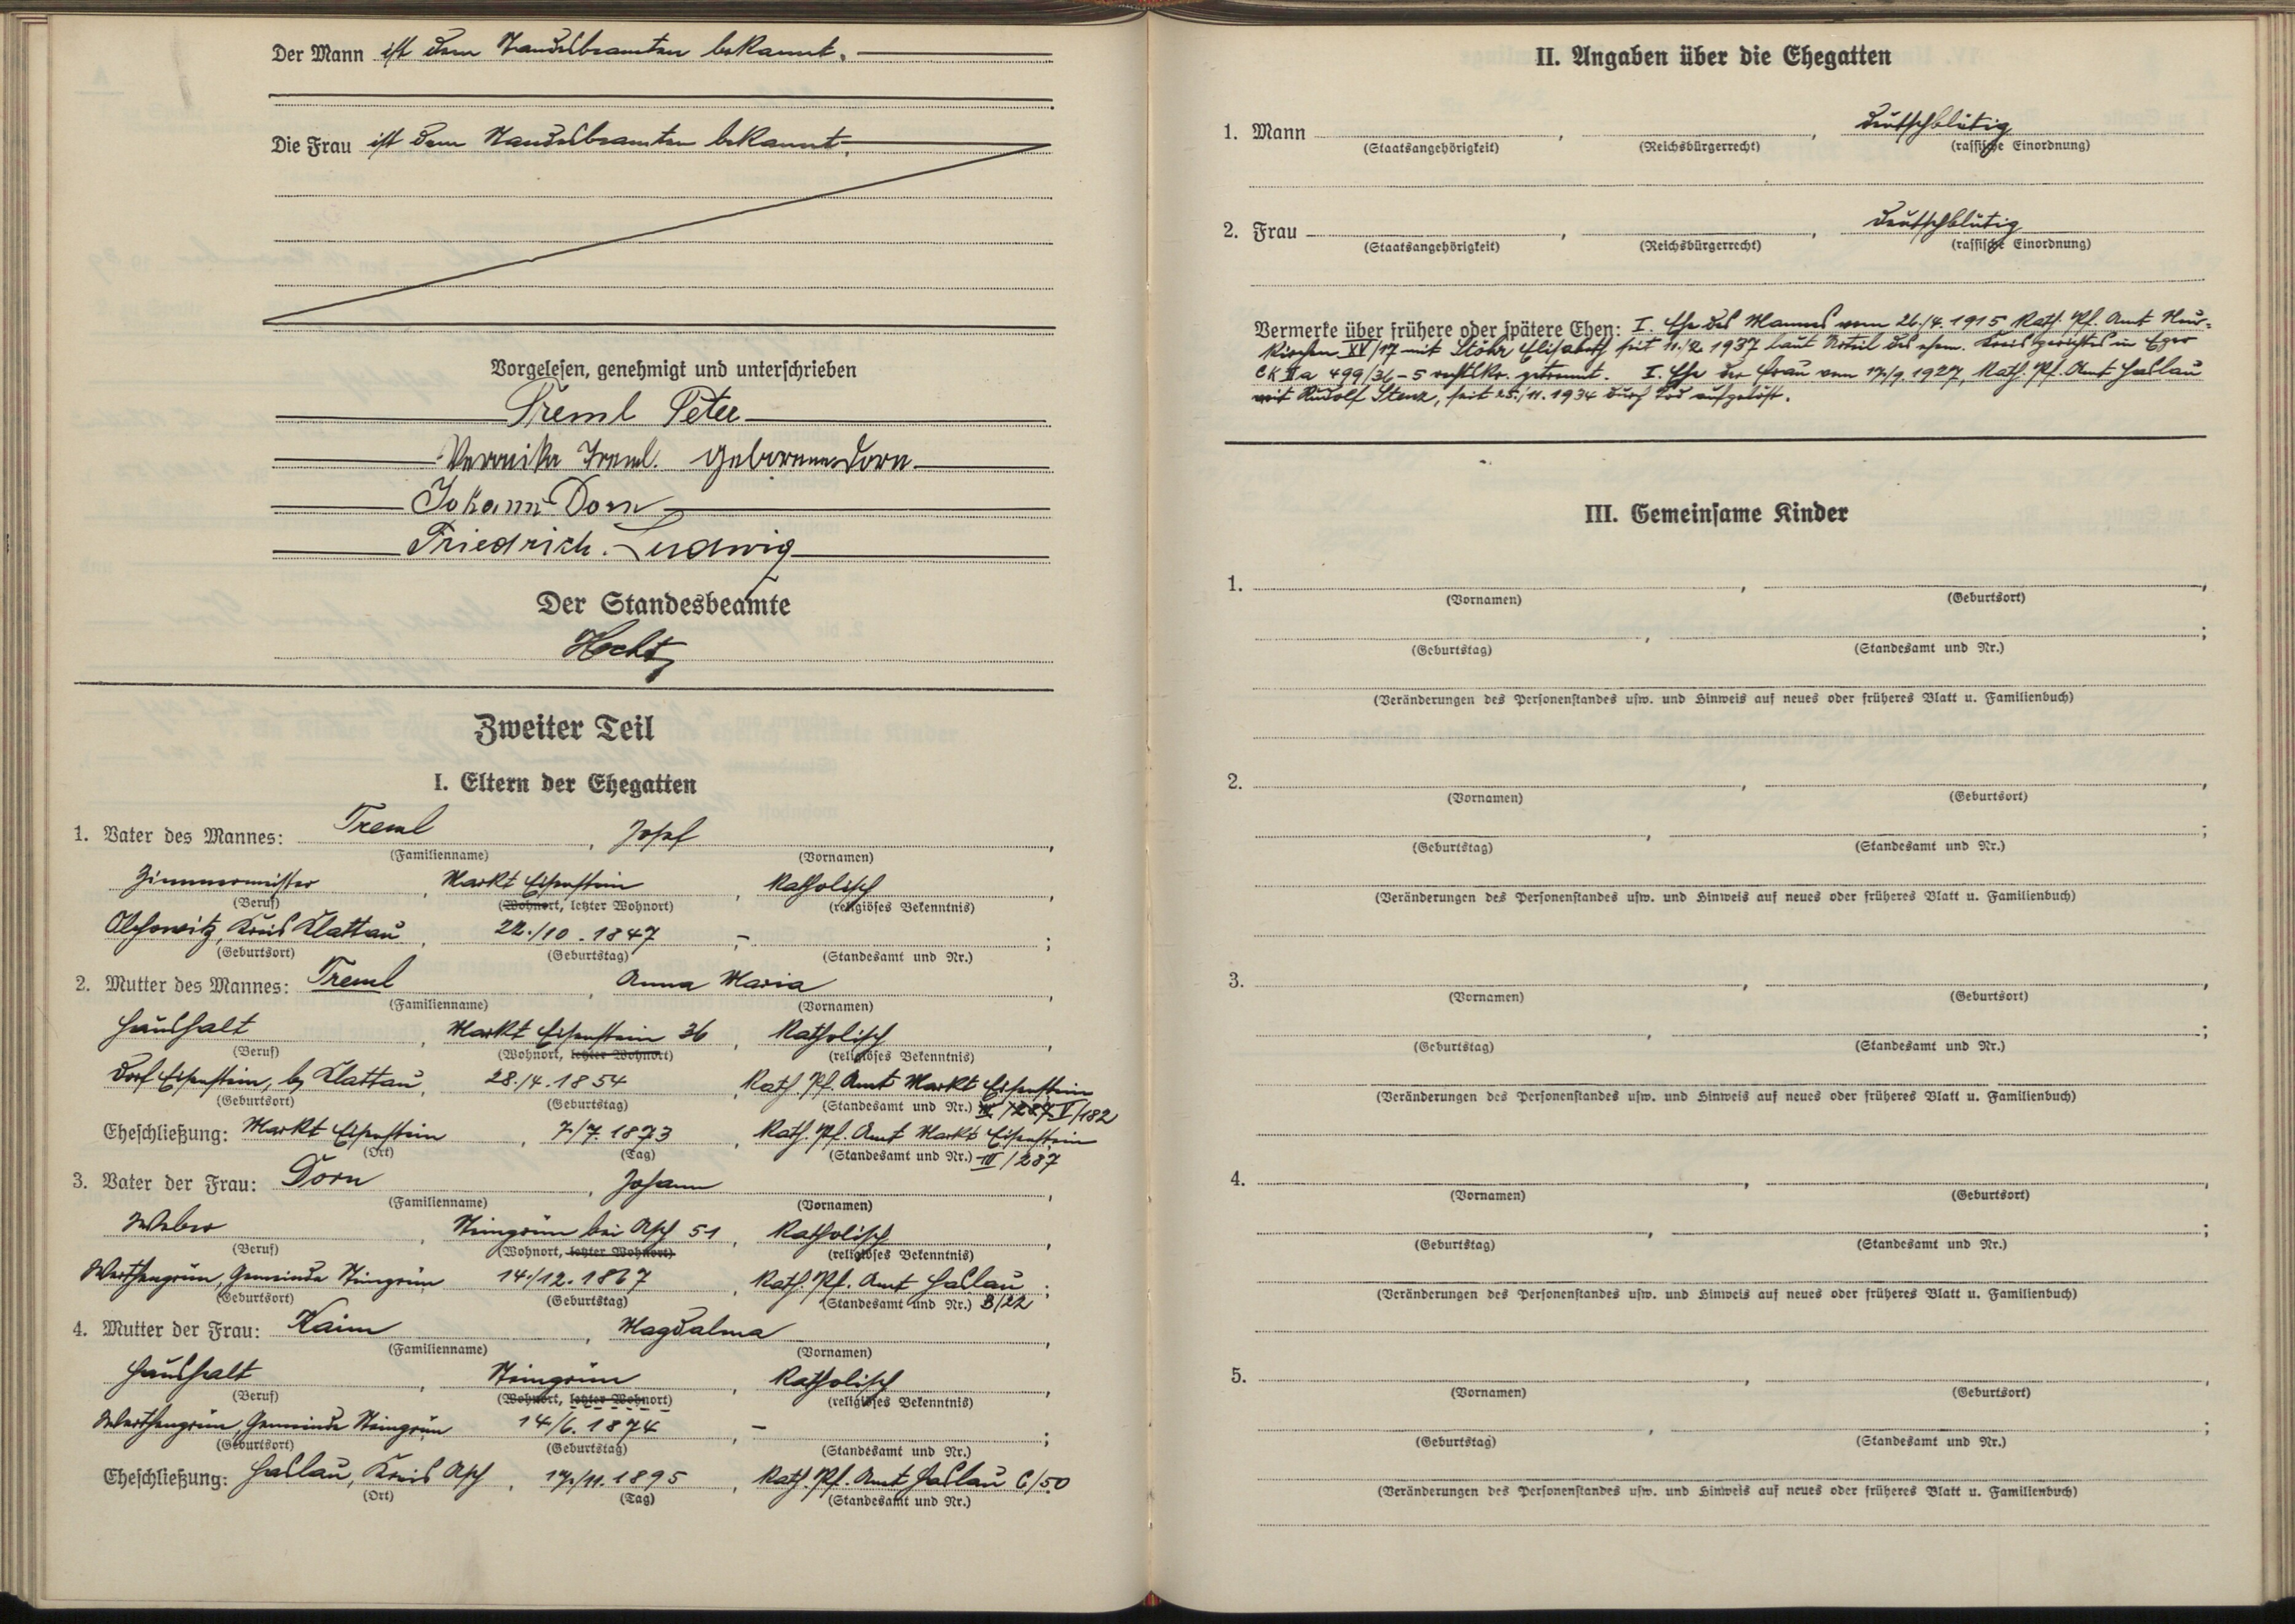 Der Mann ist dem Standesbeamten bekannt.
Die Frau ist dem Standesbeamten bekannt.
Vorgelesen, genehmigt und unterschrieben
Treml Peter
Veronika Treml. geborene Dorn
Johann Dorn
Friedrich. Ludwig
Der Standesbeamte
Hecht
Zweiter Teil
I. Eltern der Ehegatten
1. Vater des Mannes: Treml, Josef,
(Familienname) (Vornamen)
Zimmermeister, Markt Eisenstein, Katholisch,
(Beruf) (Wohnort, letzter Wohnort) (religiöses Bekenntnis)
Olchowitz, Kreis Klattau, 22./10.1847, - ;
(Geburtsort) (Geburtstag) (Standesamt und Nr.)
2. Mutter des Mannes: Treml, Anna Maria,
(Familienname) (Vornamen)
Haushalt, Markt Eisenstein 36, Katholisch,
(Beruf) (Wohnort, letzter Wohnort) (religiöses Bekenntnis)
Dorf Eisenstein, bz Klattau, 28./4.1854, Kath. Pf. Amt Markt Eisenstein
(Geburtsort) (Geburtstag) (Standesamt und Nr.) III/287 V/182
Eheschließung: Markt Eisenstein, 7./7.1873, Kath. Pf. Amt Markt Eisenstein
(Ort) (Tag) (Standesamt und Nr.) III/287
3. Vater der Frau: Dorn, Johann,
(Familienname) (Vornamen)
Weber, Steingrün bei Asch 51, Katholisch,
(Beruf) (Wohnort, letzter Wohnort) (religiöses Bekenntnis)
Werthengrün, Gemeinde Steingrün 14./12.1867, Kath. Pf. Amt Haslau;
(Geburtsort) (Geburtstag) (Standesamt und Nr.) B/22
4. Mutter der Frau: Kaim, Magdalena,
(Familienname) (Vornamen)
Haushalt, Steingrün, Katholisch,
(Beruf) (Wohnort, letzter Wohnort) (religiöses Bekenntnis)
Werthengrün, Gemeinde Steingrün 14./6.1874, - ;
(Geburtsort) (Geburtstag) (Standesamt und Nr.)
Eheschließung: Haslau, Kreis Asch, 17./11.1895, Kath. Pf. Amt Haslau C/50
(Ort) (Tag) (Standesamt und Nr.)
II. Angaben über die Ehegatten
1. Mann , , deutschblütig
(Staatsangehörigkeit) (Reichsbürgerrecht) (rassische Einordnung)
2. Frau , , deutschblütig
(Staatsangehörigkeit) (Reichsbürgerrecht) (rassische Einordnung)
Vermerke über frühere oder spätere Ehen: I. Ehe des Mannes vom 26./4.1915 Kath. Pf. Amt Neu-
kirchen XV/17 mit Stöhr Elisabeth seit 11./2.1937 laut Urteil des ehem. Kreisgerichtes in Eger
CK II a 499/36-5 rechtskr. getrennt. I. Ehe der Frau vom 17./9.1927, Kath. Pf. Amt Haslau
mit Rudolf Stenz, seit 25./11.1934 durch Tod aufgelöst.
III. Gemeinsame Kinder
1. , ,
(Vornamen) (Geburtsort)
, ;
(Geburtstag) (Standesamt und Nr.)
(Veränderungen des Personenstandes usw. und Hinweis auf neues oder früheres Blatt u. Familienbuch)
2. , ,
(Vornamen) (Geburtsort)
, ;
(Geburtstag) (Standesamt und Nr.)
(Veränderungen des Personenstandes usw. und Hinweis auf neues oder früheres Blatt u. Familienbuch)
3. , ,
(Vornamen) (Geburtsort)
, ;
(Geburtstag) (Standesamt und Nr.)
(Veränderungen des Personenstandes usw. und Hinweis auf neues oder früheres Blatt u. Familienbuch)
4. , ,
(Vornamen) (Geburtsort)
, ;
(Geburtstag) (Standesamt und Nr.)
(Veränderungen des Personenstandes usw. und Hinweis auf neues oder früheres Blatt u. Familienbuch)
5. , ,
(Vornamen) (Geburtsort)
, ;
(Geburtstag) (Standesamt und Nr.)
(Veränderungen des Personenstandes usw. und Hinweis auf neues oder früheres Blatt u. Familienbuch)